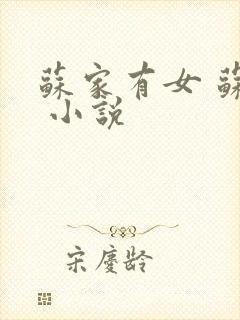 蘇家有女 蘇
小説
宋慶齡